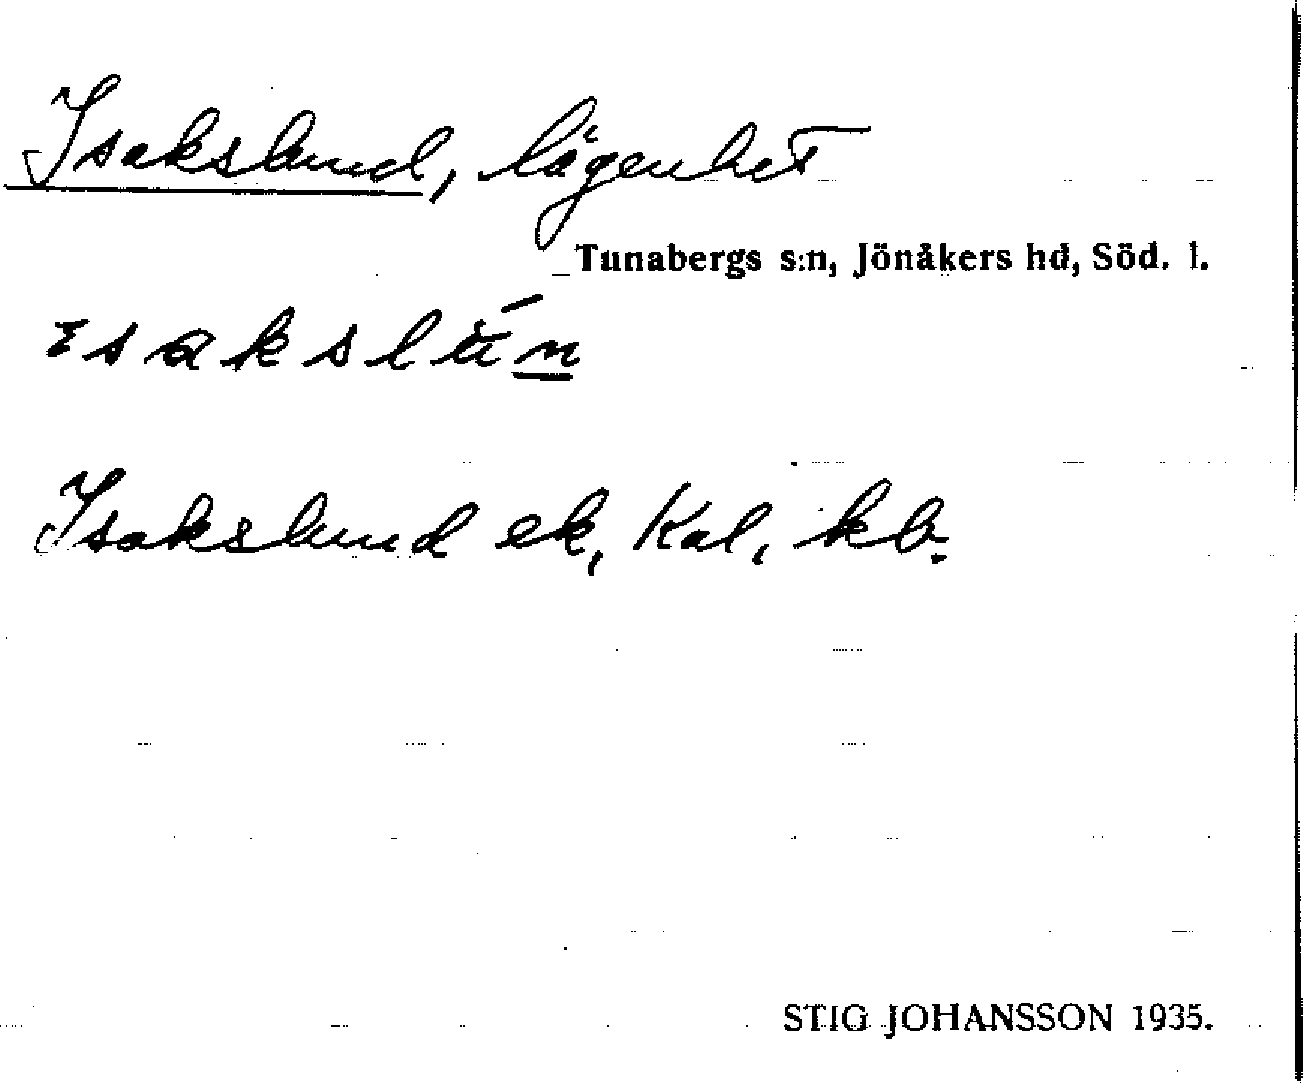 Isakslund, lägenhet
Tunabergs s:n, Jönåkers hd, Söd. l.
Isakslund ek, Kal, kb.
STIG JOHANSSON 1935.